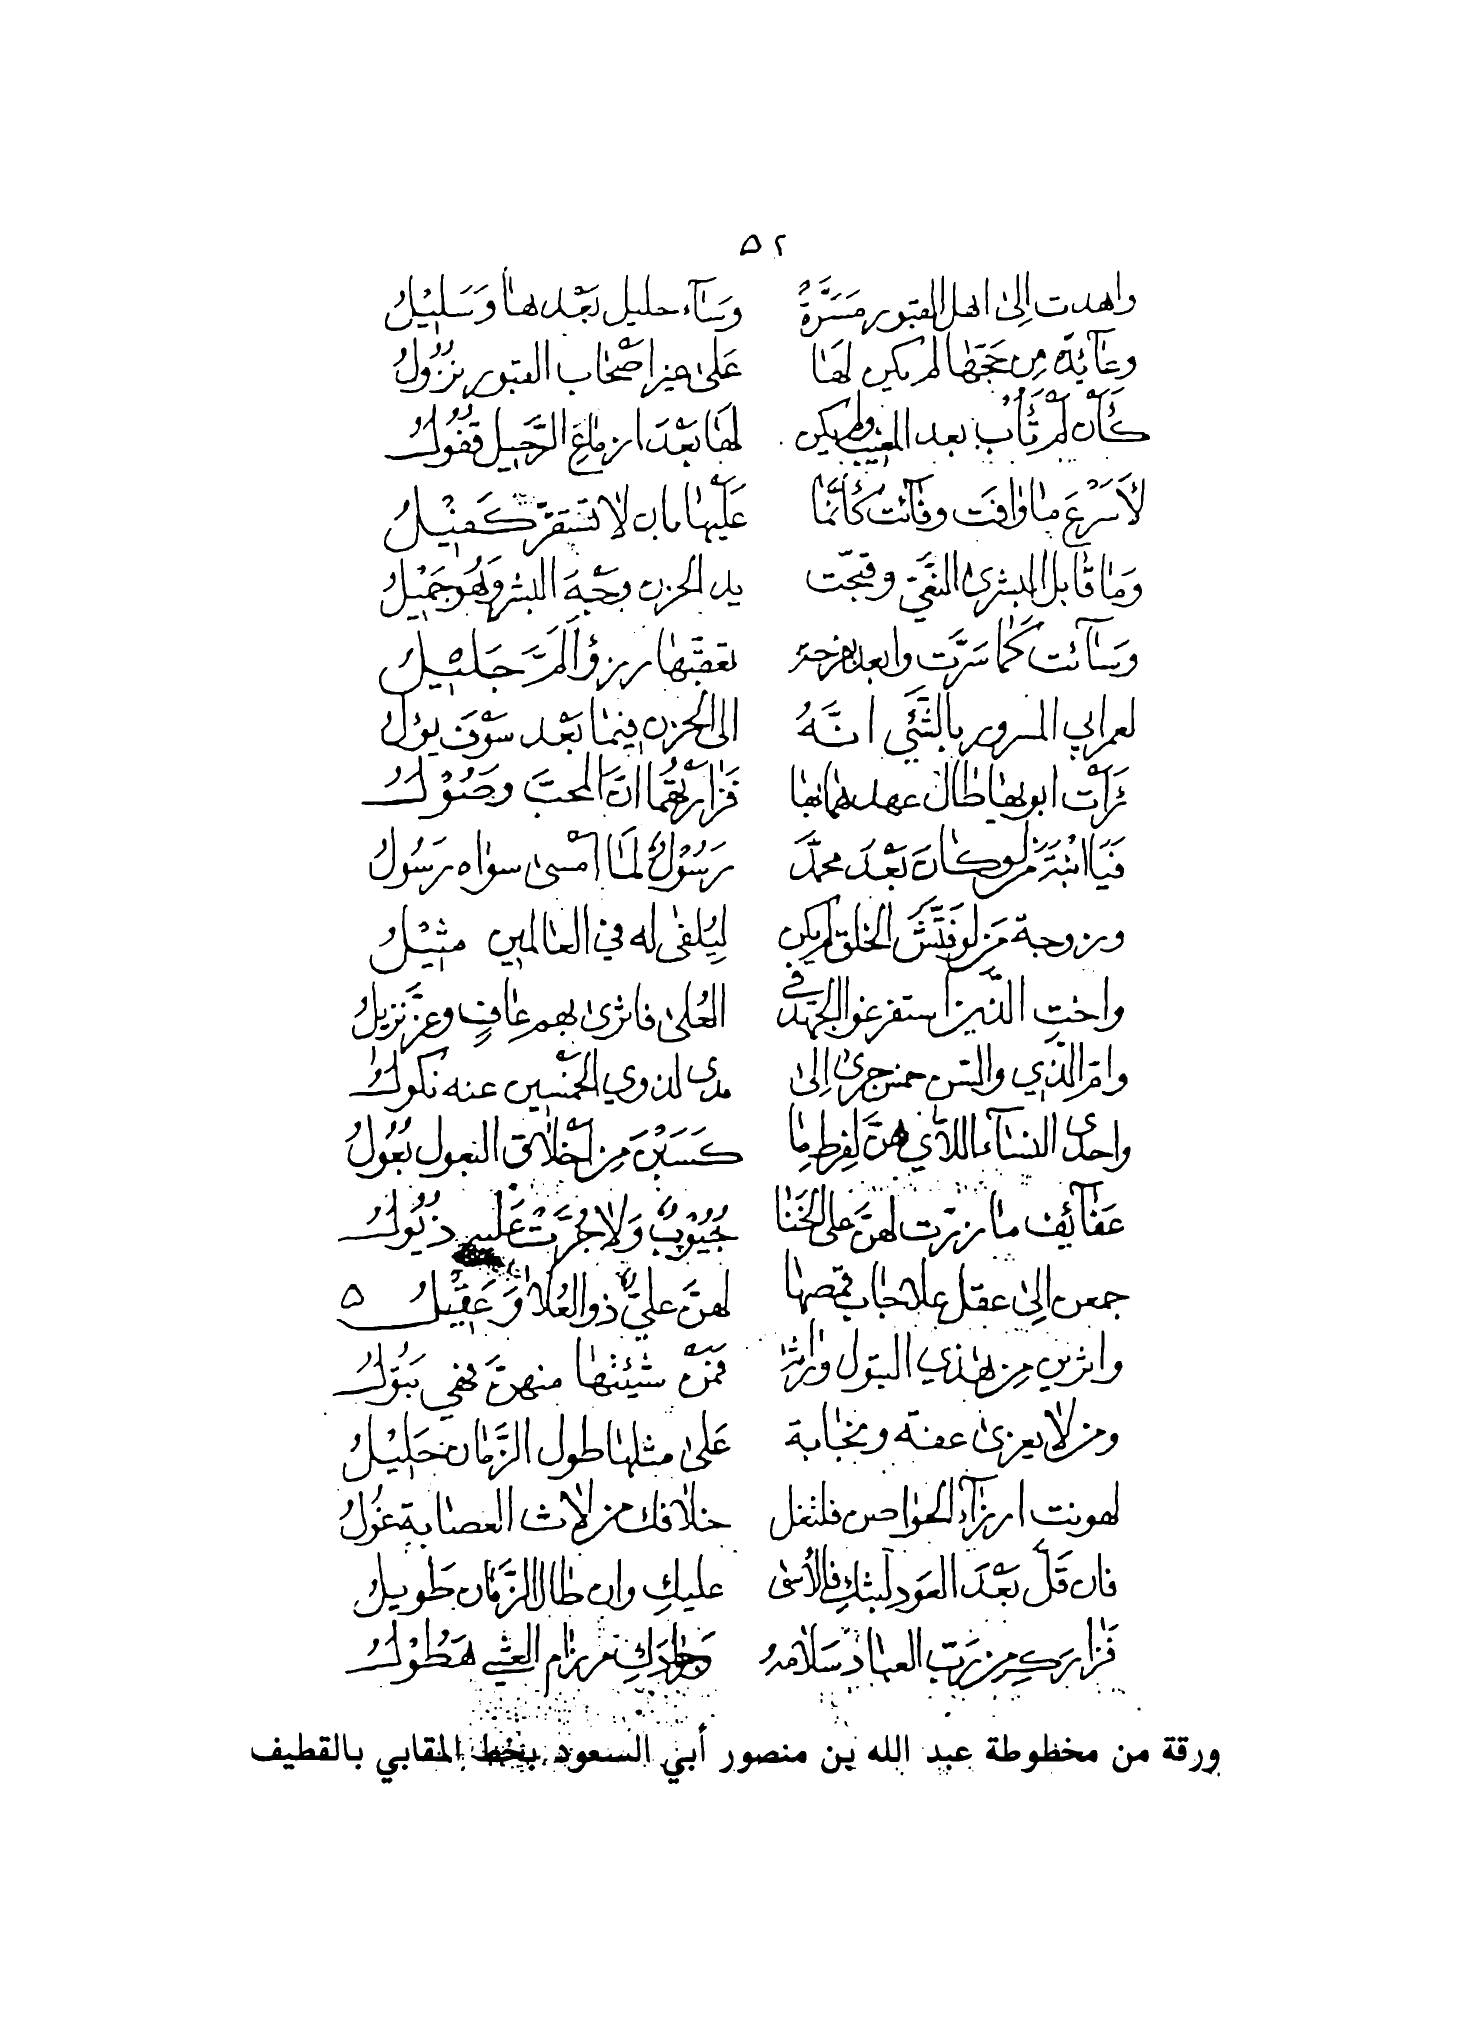 ٥٢
واهدت إلى اهل القبور مَسَرَّةً وَسَآء حليل بَعْدها وَسَلِيْلُ
وعَآئِدَة مِن حَجّهَا لم يكن لهَا عَلى غير اصْحَاب القبور نزُوْلُ
كَأَنْ لَمْ تَأُبْ بعد المغيب ولم يكن لهَا بَعْدَ ازمَاعِ الرَّحِيل قفُوْلُ
لأَسرْعَ مَا وَافَت وفَآئت كَأَنَّمَا عَلَيْهَا بان لا تَسْتَقرَّ كَفِيْلُ
وَمَا قَابل البشرى النعَيّ وقبّحت يد الحزن وجْهَ البشر وَهُو جَمِيْلُ
وَسَآئت كَمَا سَرَّت وابعد بفرحة تعقبّها رزؤ أَلَمَّ جَلِيْلُ
لعمرابي المسرور بالشَّيْ انَّهُ الى الحزن فيمَا بَعْد سَوْفَ يؤلُ
نَرَأَتْ ابويهَا طَال عهدهمَا بهَا فَزَارَتْهُمَا انَّ المحبَّ وصُوْلُ
فَيَا ابْنَةَ مَنْ لو كَانَ بَعْدَ محمدَّ رَسُوْلٌ لمَا أمْسى سواه رَسُولُ
وزوجة مَن لو فَتَّشَ الخلق لم يكن لِيُلفى له في العَالمين مثِيْلُ
واختِ الَّذين استفرغوا الجهد في العُلى فاثرى بهم عَافٍ وعزَّ نزيلُ
وامّ الَّذي والسّن خمس جرى إلى مدى لذوي الخمْسين عنه نكولُ
واحدى النسَآء اللآي هنَّ لفرط مَا كَسَبْنَ مِن أخْلاق البعول بُعُولُ
عَفَآئِف مَا زرّت لهنَّ على الخَنَا جُيُوْبٌ وَلا جُرَّتْ عَلَيه ذُيُولُ
جمعن إلى عقل علاحاب قمّصهَا لهنَّ عليٌّ ذو العُلاَ وَعَقِيْلُ ٥
واثرين مِن هٰذي البتول وَارثهَا فمَنْ شئِنهَا منهنَّ فهي بَتوُلُ
ومن لا يعزى عفة ونجَابة عَلى مثلهَا طول الزَّمَان حَلِيْلُ
لهونت ارزَآء الخواص فلتغل خلافك من لاث العصَابة غوُلُ
فان قَلَّ بَعْدَ العَود لبثكِ فَالأسى عليكِ وان طَال الزَّمَان طَويلُ
فَزَاركِ مِن رَبّ العبَاد سَلامهُ وَجَادَكِ من رزام العشي هَطُوْلُ
ورقة من مخطوطة عبد الله بن منصور أبي السعود بخط المقابي بالقطيف